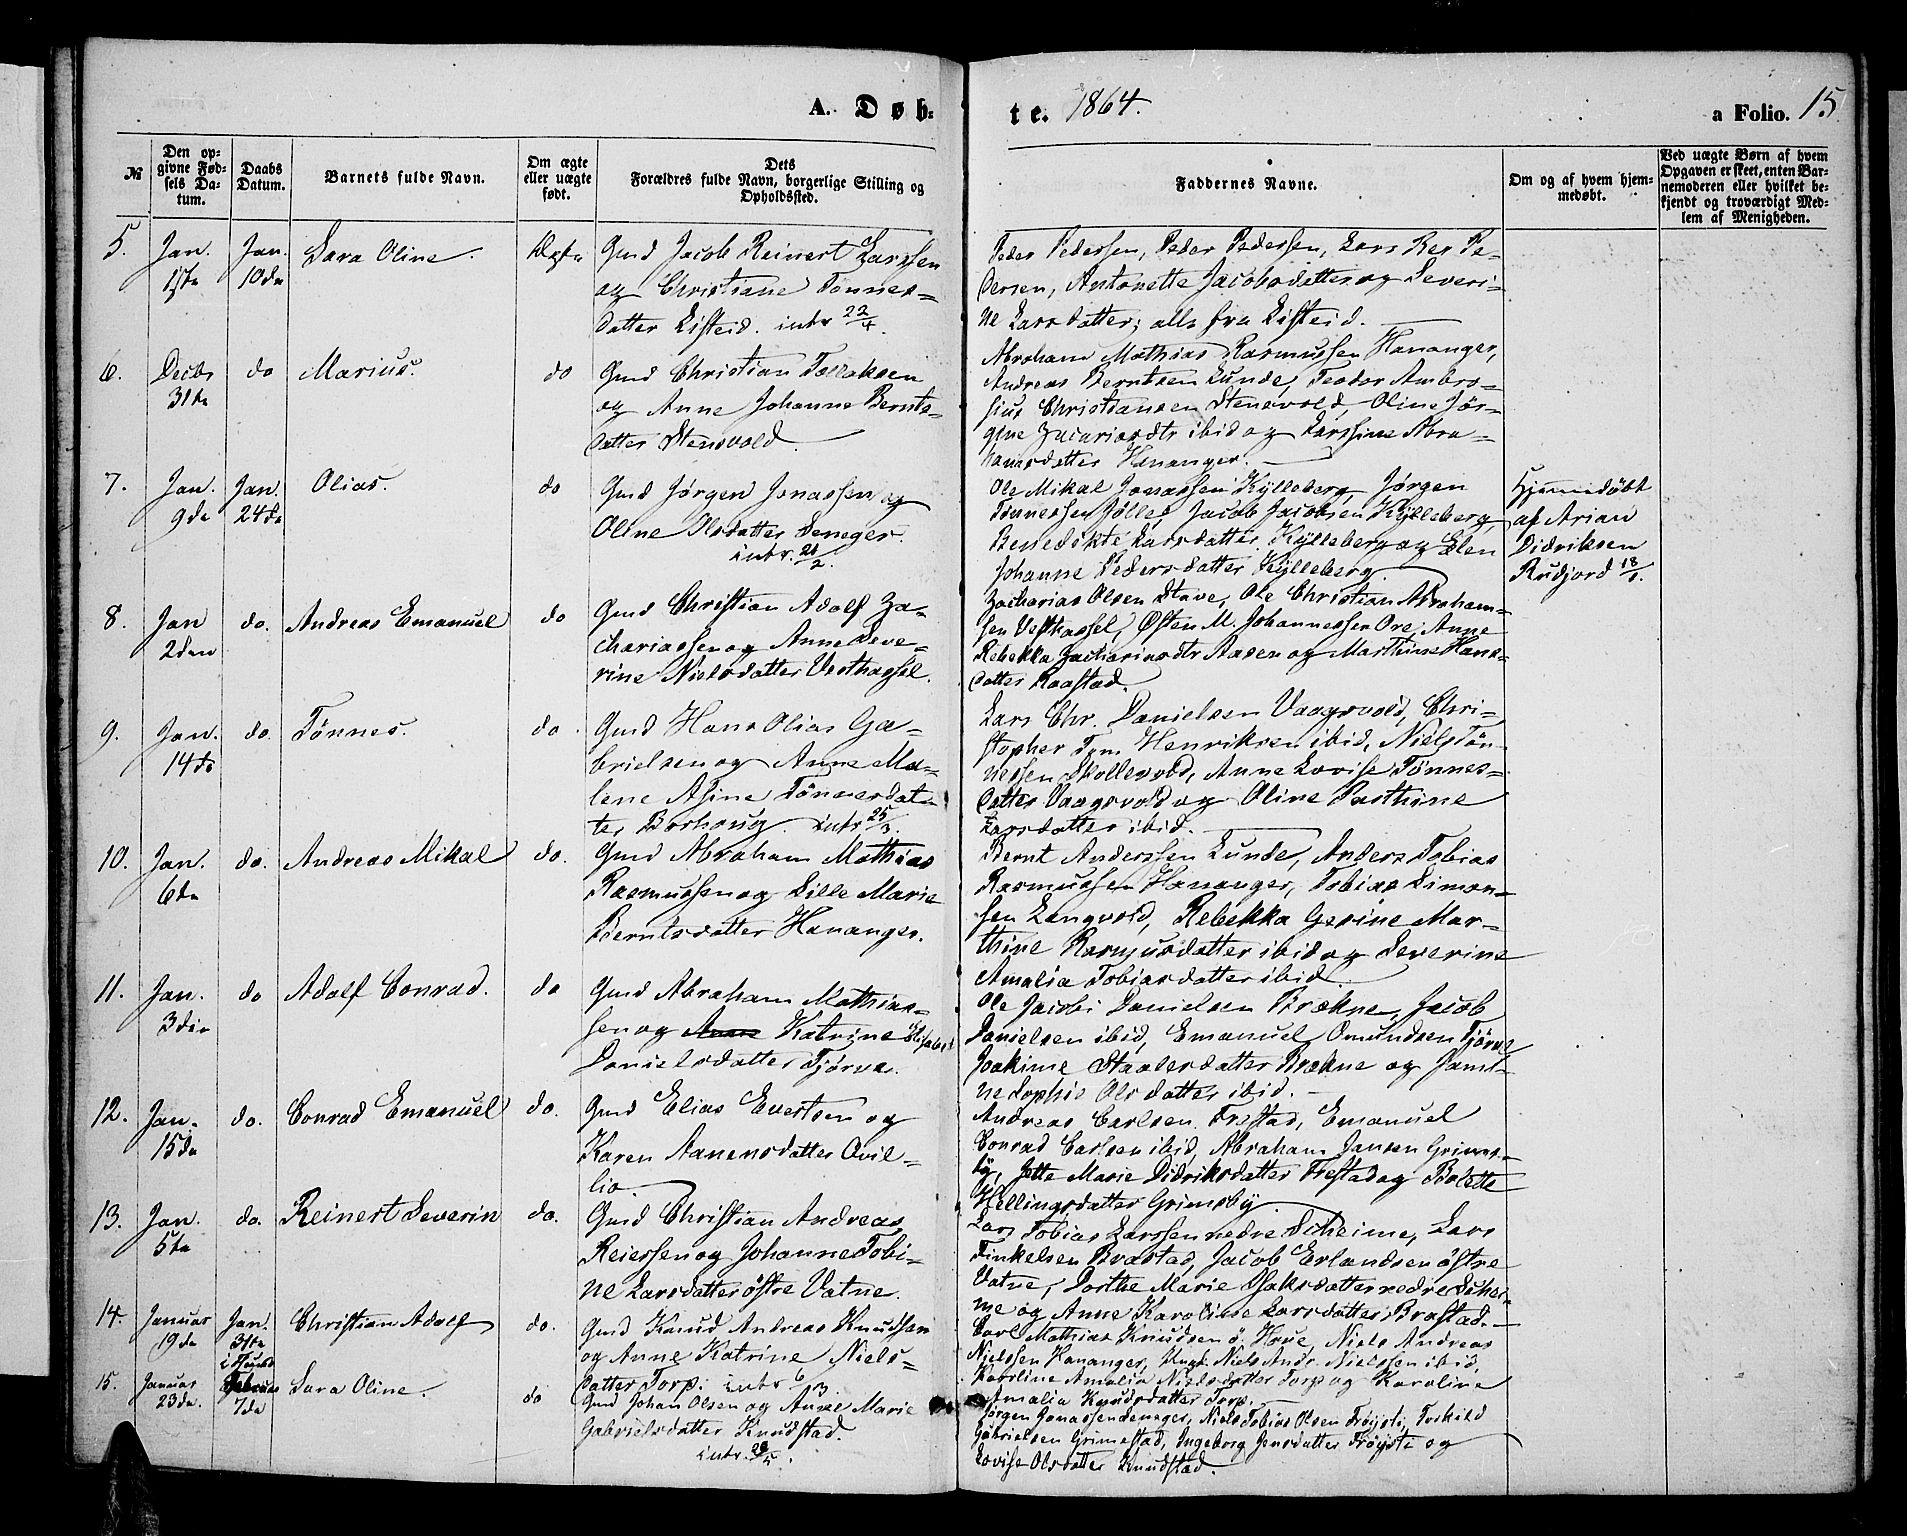 A. Døb-
te. 1864.
a Folio. 15
№
Den op-
givne Fød-
sels Da-
tum.
Daabs
Datum.
Barnets fulde Navn.
Om ægte
eller uægte
født.
Dets
Forældres fulde Navn, borgerlige Stilling og
Opholdssted.
Faddernes Navne.
Om og af hvem hjem-
medøbt.
Ved uægte Børn af hvem
Opgaven er skeet, enten Bar-
nemoderen eller hvilket be-
kjendt og troværdigt Med-
lem af Menigheden.
5.
Jan.
1ste
Jan.
10de
Sara Oline.
Ægte
Gmd Jacob Reinert Larssen
og Christiane Tønnes-
datter Listeid. intr 22/4.
Peder Pedersen, Peder Pedersen, Lars Rei Pe-
dersen, Antonette Jacobsdatter og Severi-
ne Larsdatter; alle fra Listeid.
6.
Decbr
31te
do
Marius.
do
Gmd Christian Tollaksen
og Anne Johanne Bernts-
datter Stensvold.
Abraham Mathias Rasmussen Hananger,
Andreas Berntsen Lunde, Teodor Ambro-
sius Christiansen Stensvold, Oline Jør-
gine Zacariasdtr ibid og Larssine Abra-
hamsdatter Hananger.
7.
Jan.
9de
Jan.
24de
Olias.
do
Gmd Jørgen Jonassen og
Oline Olsdatter Deneger.
intr. 21/2.
Ole Mikal Jonassen Kylleberg, Jørgen
Tønnessen Jølle, Jacob Jacobsen Kylleberg,
Benedikte Larsdatter Kylleberg og Elen
Johanne Pedersdatter Kylleberg.
Hjemmedøbt
af Arian
Didriksen
Rudjord 18/1.
8.
Jan
2den
do.
Andreas Emanuel
do
Gmd Christian Adolf Za-
chariassen og Anne Seve-
rine Nielsdatter Vesthassel.
Zacharias Olsen Stave, Ole Christian Abraham-
sen Vesthassel, Østen M. Johannessen Ore, Anne
Rebekka Zachariasdtr Aasen og Marthine Hans-
datter Raastad.
9.
Jan.
14de
do.
Tønnes.
do.
Gmd Hans Olias Ga-
brielsen og Anne Ma-
lene Asine Tønnesdat-
ter Borhaug. intr 25/3.
Lars Chr. Danielsen Vaagsvold, Chri-
stopher Tom Henriksen ibid, Niels Tøn-
nessen Skollevold, Anne Lovise Tønnes-
datter Vaagsvold og Oline Parthine
Larsdatter ibid.
10.
Jan.
6te
do.
Andreas Mikal
do.
Gmd Abraham Mathias
Rasmussen og Lille Marie
Berntsdatter Hananger.
Bernt Anderssen Lunde, Anders Tobias
Rasmussen Hananger, Tobias Simon-
sen Langvold, Rebekka Gesine Mar-
thine Rasmusdatter ibid og Severine
Amalia Tobiasdatter ibid.
11.
Jan.
3die
do
Adolf Conrad.
do
Gmd Abraham Mathias-
sen og Anne Katrine Elisabet
Danielsdatter Tjørve.
Ole Jacobi Danielsen Brækne, Jacob
Danielsen ibid, Emanuel Omundsen Tjørve
Joakime Staalesdatter Brækne og Jami-
ne Sophie Olsdatter ibid.
12.
Jan.
15de
do.
Conrad Emanuel
do.
Gmd Elias Evertsen og
Karen Aanensdatter Qvil-
lio.
Andreas Carlsen Frestad, Emanuel
Conrad Carlsen ibid, Abraham Jansen Grims-
by, Jette Marie Didriksdatter Frestad og Bolette
Hellingsdatter Grimsby.
13.
Jan.
5te
do.
Reinert Severin
do.
Gmd Christian Andreas
Reiersen og Johanne Tobi-
ne Larsdatter østre Vatne.
Lars Tobias Larssen nedre Skeime, Lars
Tinkelsen Brastad, Jacob Erlandsen østre
Vatne, Dorthe Marie Isaksdatter nedre Skei-
me og Anne Karoline Larsdatter Brastad.
14.
Januar
19de
Jan.
31te
Christian Adolf
do.
Gmd Knud Andreas Knudsen
og Anne Katrine Niels-
datter Torp. intr 6/3.
Carl Mathias Knudsen ø. Hrue, Niels Andreas
Nielssen Hananger, Ungk. Niels Andr. Nielssen ibid,
Karoline Amalia Nielsdatter Torp og Karoline
Amalia Knudsdatter Torp.
15.
Januar
23de.
Februar
7de
Sara Oline.
do
Gmd Johan Olsen og Anne Marie
Gabrielsdatter Knudstad.
intr. 28/5.
Jørgen Jonassen Deneger, Niels Tobias Olsen Frøyste, Torkild
Gabrielsen Grimestad, Ingeborg Jensdatter Frøyste og
Lovise Olsdatter Knudstad.